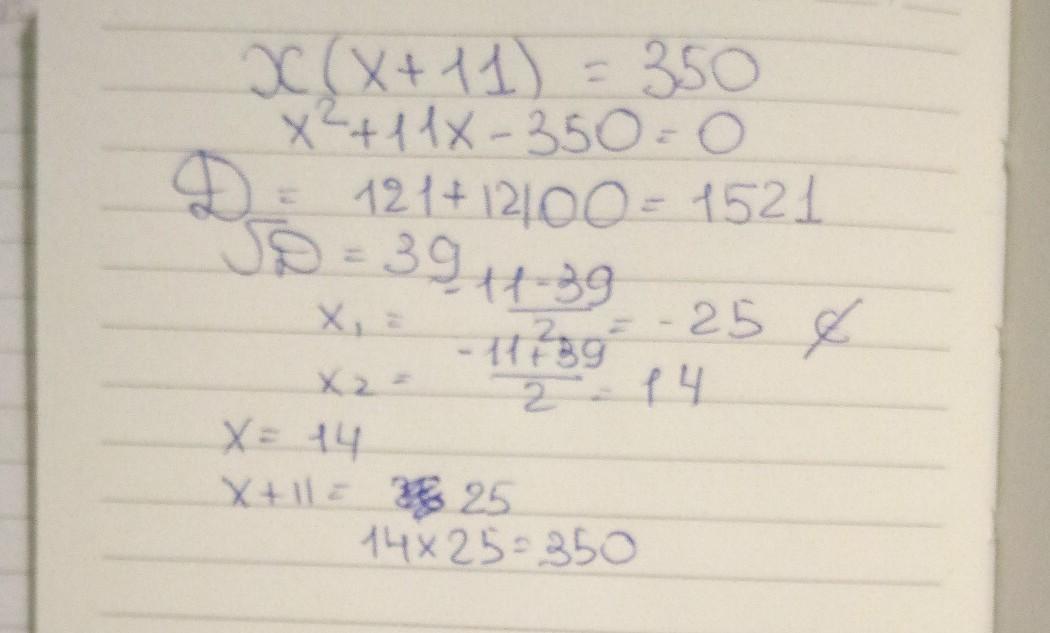 x(x+11) = 350
x²+11x-350=0
D = 121+12100=1521
√D = 39
x₁ = (-11-39)/2 = -25 ¢
x₂ = (-11+39)/2 = 14
x = 14
x+11 = 25
14×25=350